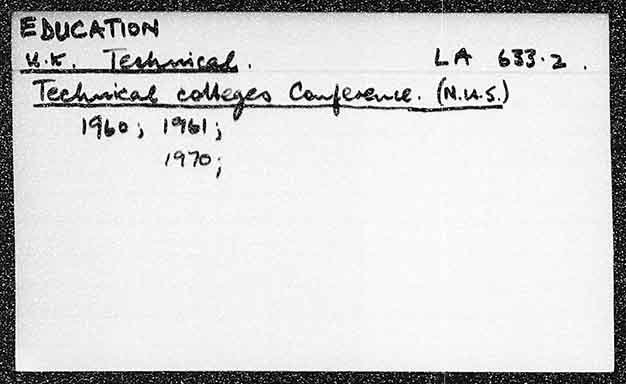 EDUCATION
U.K. Technical. LA 633.2.
Technical colleges Conference. (N.U.S.)
1960; 1961;
1970;